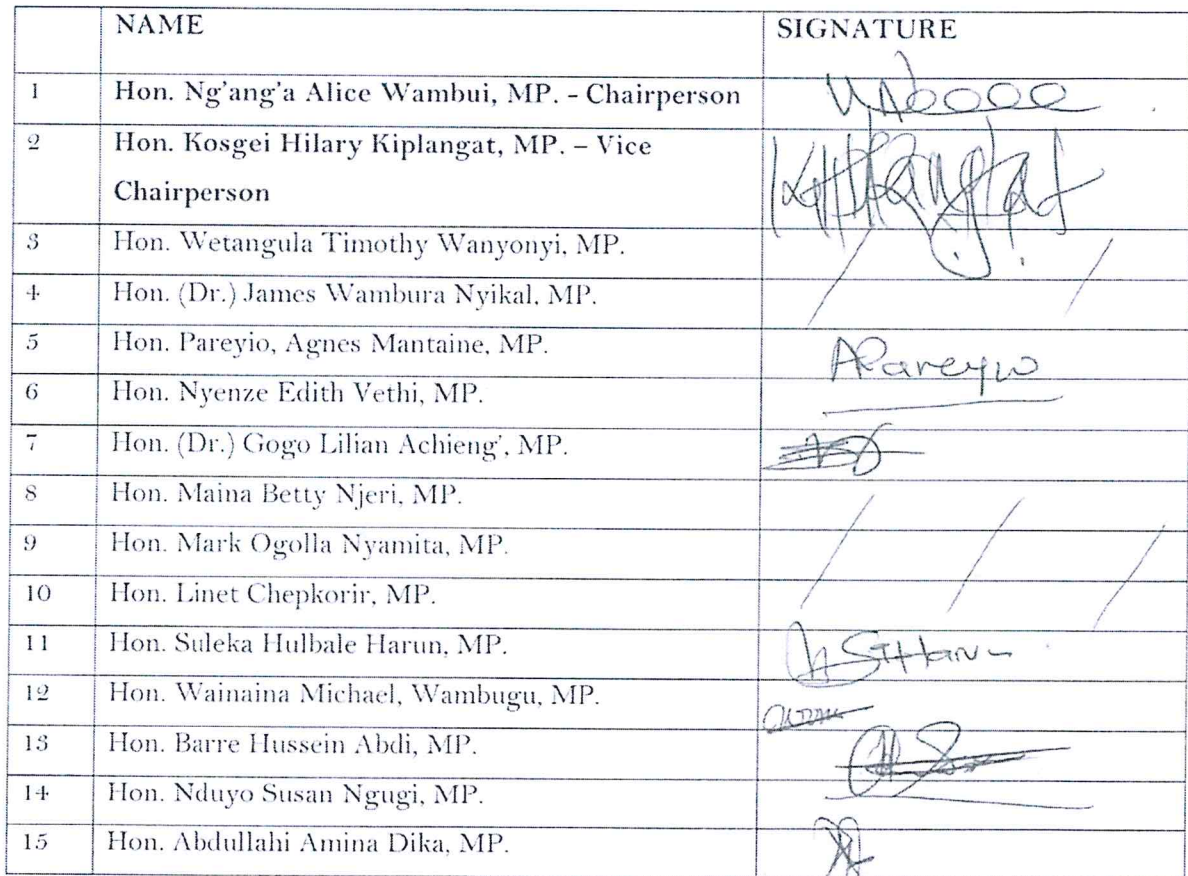 NAME SIGNATURE
1 Hon. Ng'ang'a Alice Wambui, MP. - Chairperson
2 Hon. Kosgei Hilary Kiplangat, MP. – Vice
Chairperson Kiplangat
3 Hon. Wetangula Timothy Wanyonyi, MP.
4 Hon. (Dr.) James Wambura Nyikal, MP.
5 Hon. Pareyio, Agnes Mantaine, MP. APareyio
6 Hon. Nyenze Edith Vethi, MP.
7 Hon. (Dr.) Gogo Lilian Achieng', MP.
8 Hon. Maina Betty Njeri, MP.
9 Hon. Mark Ogolla Nyamita, MP.
10 Hon. Linet Chepkorir, MP.
11 Hon. Suleka Hulbale Harun, MP.
12 Hon. Wainaina Michael, Wambugu, MP.
13 Hon. Barre Hussein Abdi, MP.
14 Hon. Nduyo Susan Ngugi, MP.
15 Hon. Abdullahi Amina Dika, MP.